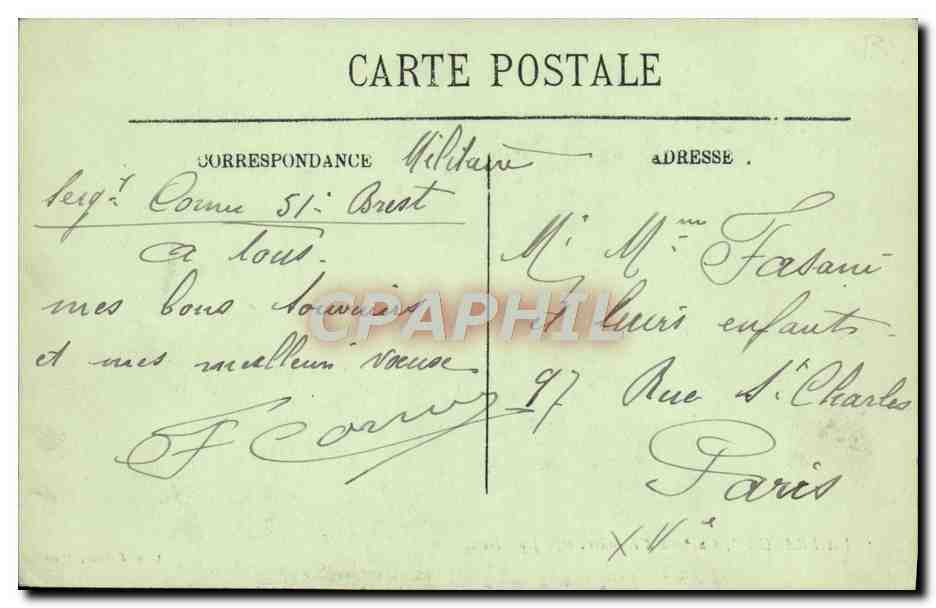 CARTE POSTALE
CORRESPONDANCE Militaire
ADRESSE.
Sergt Cornu 51e Brest
a tous
mes bons souvenirs
et mes meilleurs voeux
F Cornu
Mr Mme Fasani
et leurs enfants
97 Rue St Charles
Paris
XVe
CPAPHIL